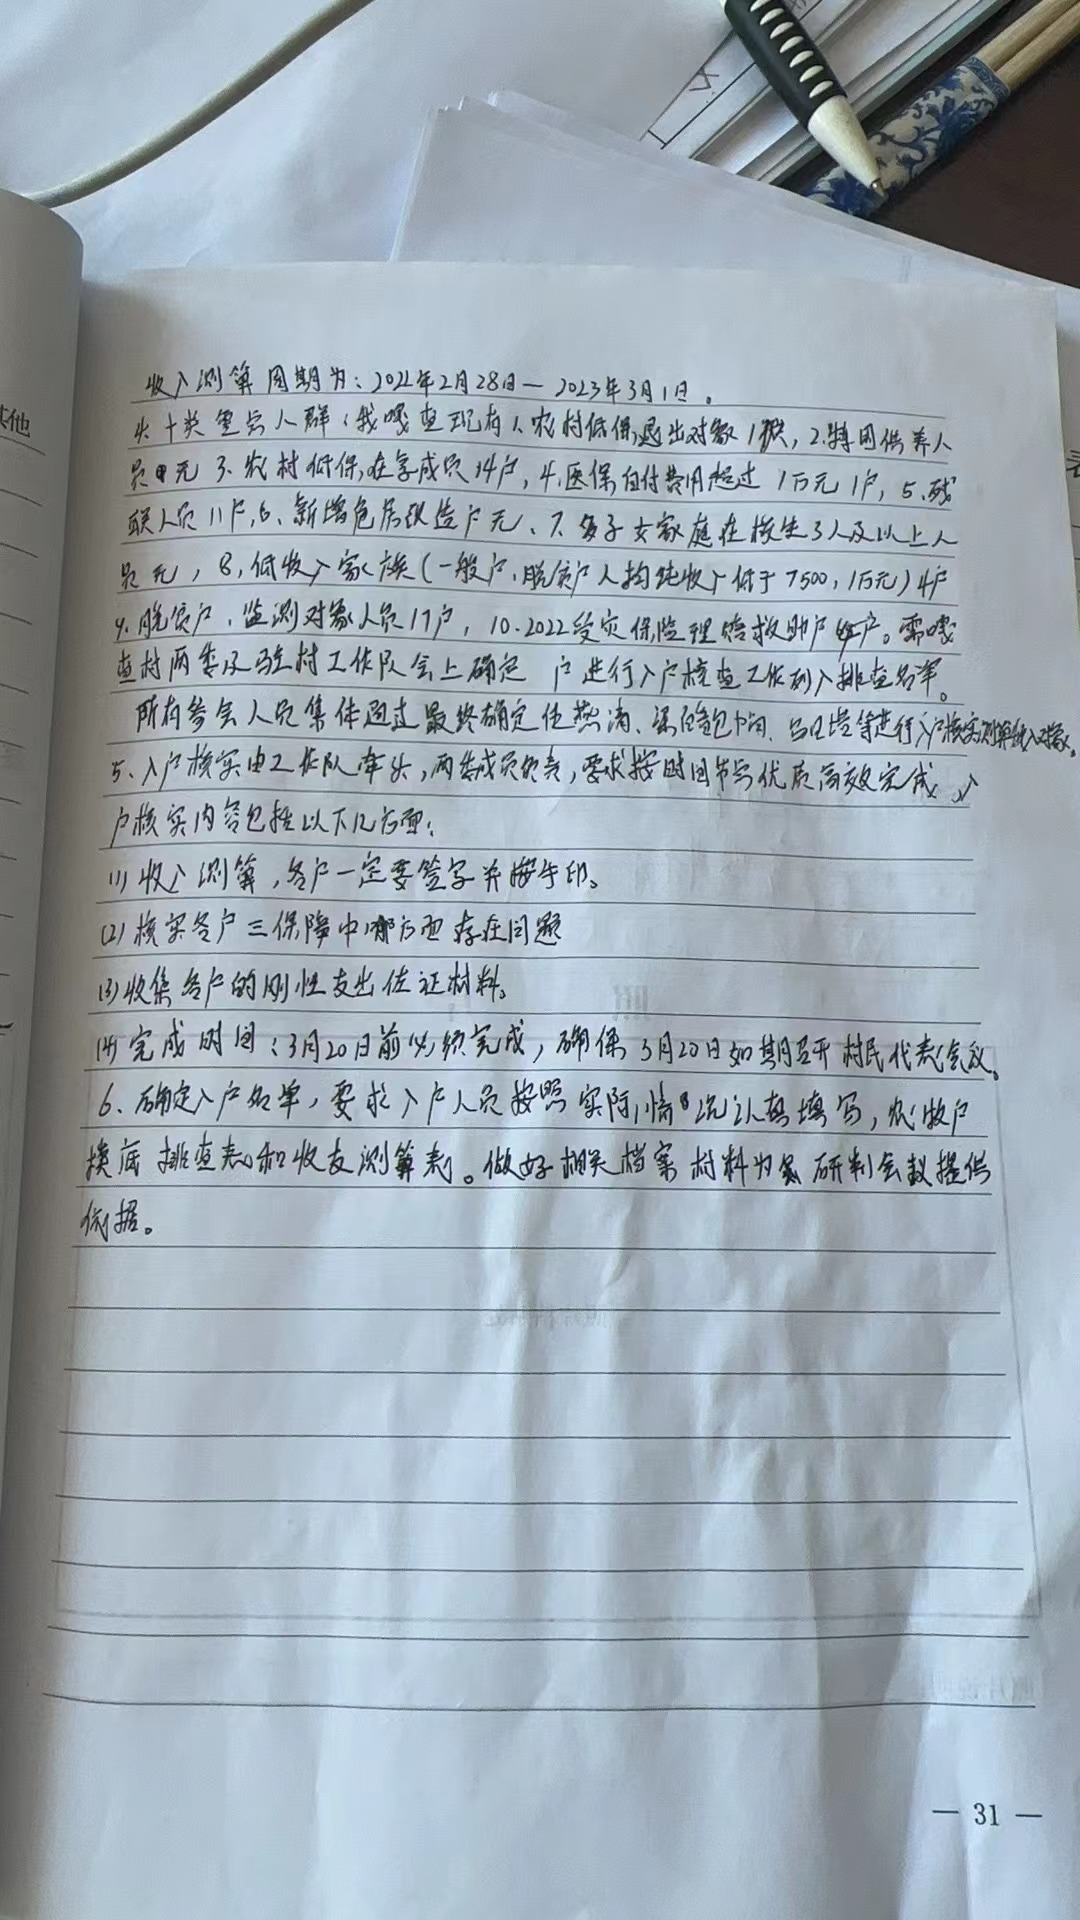 其他
收入测算周期为：2022年2月28日—2023年3月1日。
4、十类重点人群：我嘎查现有1、农村低保退出对象1户，2.特困供养人
员无 3、农村低保，在享成员14户，4、医保自付费用超过1万元1户，5、残
联人员11户，6、新增危房改造户无、7、多子女家庭在校生3人及以上人
员无，8、低收入家族（一般户、脱贫户人均纯收入低于7500，1万元）4户
9、脱贫户、监测对象人员17户，10、2022受灾保险理赔救助户 户。需嘎
查村两委及驻村工作队会上确定 户进行入户核查工作列入排查名单。
所有参会人员集体通过最终确定任燕清、 等进行入户核实测算纳入对象。
5、入户核实由工作队牵头，两委成员负责，要求按时间节点优质高效完成，入
户核实内容包括以下几方面：
(1)收入测算，各户一定要签字并按手印。
(2)核实各户三保障中哪方面存在问题
(3)收集各户的刚性支出佐证材料。
(4)完成时间：3月20日前必须完成，确保3月20日如期召开村民代表会议。
6、确定入户名单，要求入户人员按照实际情况认真填写，农牧户
摸底排查表和收支测算表。做好相关档案材料为 研判会议提供
依据。
— 31 —